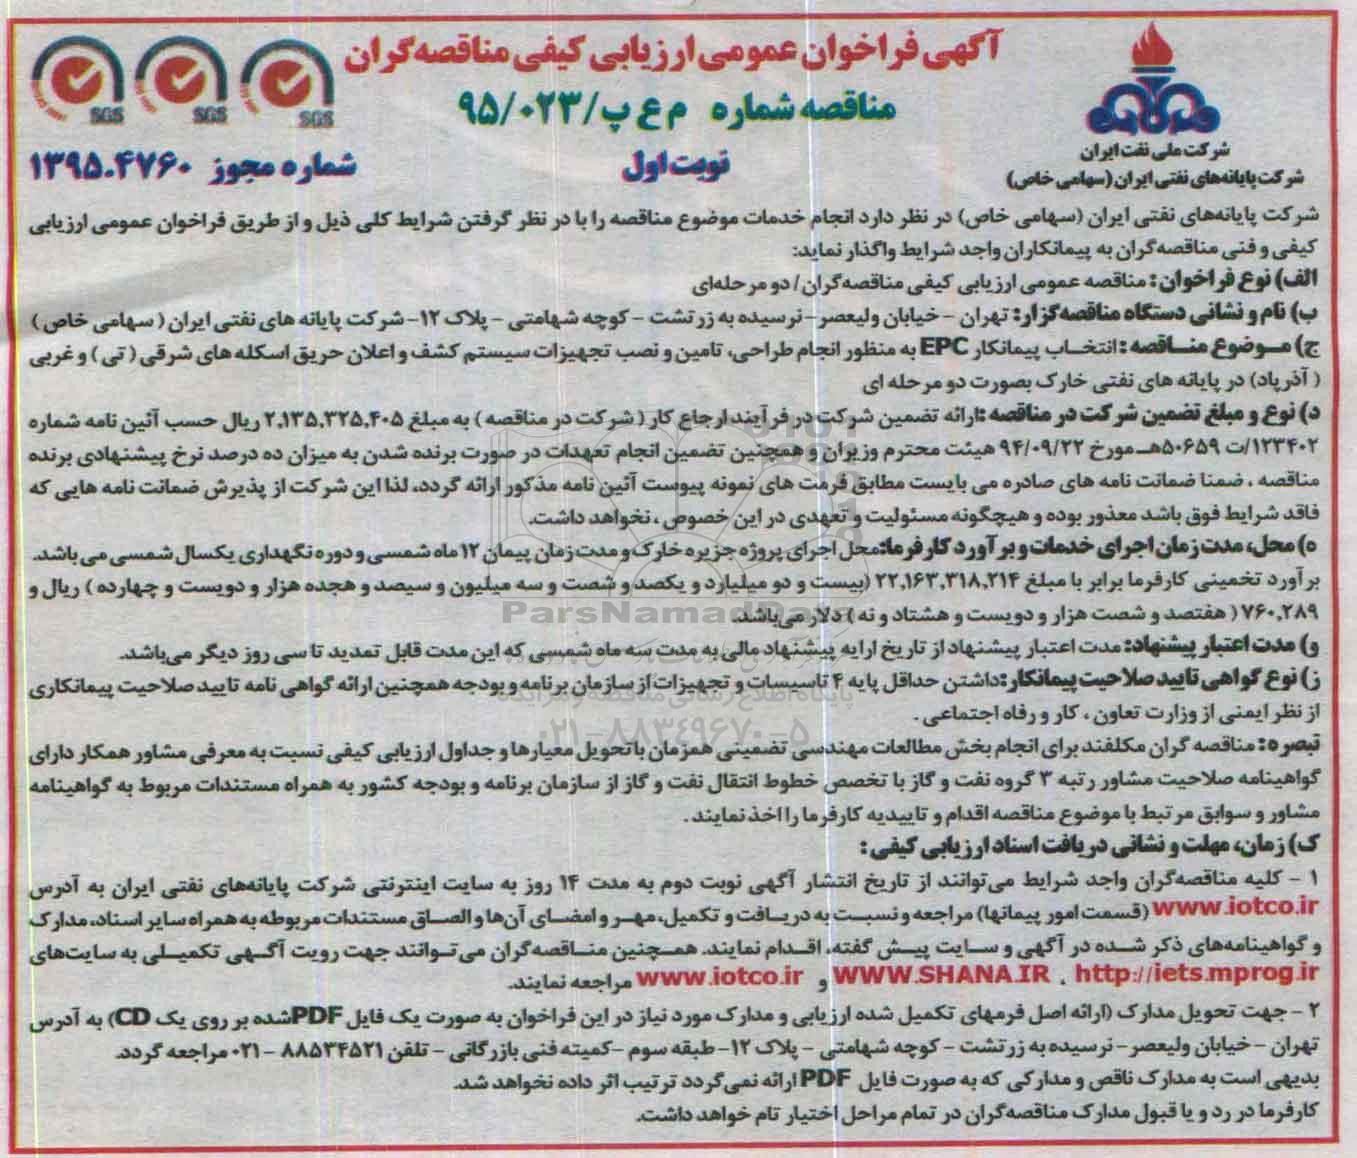 آگهی فراخوان عمومی ارزیابی کیفی مناقصه‌گران
مناقصه شماره م ع پ/۹۵/۰۲۳
نوبت اول
شماره مجوز ۱۳۹۵.۴۷۶۰
SGS
SGS
SGS
شرکت ملی نفت ایران
شرکت پایانه‌های نفتی ایران (سهامی خاص)
شرکت پایانه‌های نفتی ایران (سهامی خاص) در نظر دارد انجام خدمات موضوع مناقصه را با در نظر گرفتن شرایط کلی ذیل و از طریق فراخوان عمومی ارزیابی
کیفی و فنی مناقصه‌گران به پیمانکاران واجد شرایط واگذار نماید:
الف) نوع فراخوان: مناقصه عمومی ارزیابی کیفی مناقصه‌گران/ دو مرحله‌ای
ب) نام و نشانی دستگاه مناقصه‌گزار: تهران – خیابان ولیعصر– نرسیده به زرتشت – کوچه شهامتی – پلاک ۱۲– شرکت پایانه های نفتی ایران ( سهامی خاص )
ج) موضوع مناقصه: انتخاب پیمانکار EPC به منظور انجام طراحی، تامین و نصب تجهیزات سیستم کشف و اعلان حریق اسکله های شرقی ( تی ) و غربی
( آذرپاد) در پایانه های نفتی خارک بصورت دو مرحله ای
د) نوع و مبلغ تضمین شرکت در مناقصه :ارائه تضمین شرکت در فرآیند ارجاع کار ( شرکت در مناقصه ) به مبلغ ۲,۱۳۵,۳۲۵,۴۰۵ ریال حسب آئین نامه شماره
۱۲۳۴۰۲/ت ۵۰۶۵۹هـ مورخ ۹۴/۰۹/۲۲ هیئت محترم وزیران و همچنین تضمین انجام تعهدات در صورت برنده شدن به میزان ده درصد نرخ پیشنهادی برنده
مناقصه ، ضمنا ضمانت نامه های صادره می بایست مطابق فرمت های نمونه پیوست آئین نامه مذکور ارائه گردد، لذا این شرکت از پذیرش ضمانت نامه هایی که
فاقد شرایط فوق باشد معذور بوده و هیچگونه مسئولیت و تعهدی در این خصوص ، نخواهد داشت.
ه) محل، مدت زمان اجرای خدمات و برآورد کارفرما:محل اجرای پروژه جزیره خارک و مدت زمان پیمان ۱۲ ماه شمسی و دوره نگهداری یکسال شمسی می باشد.
برآورد تخمینی کارفرما برابر با مبلغ ۲۲,۱۶۳,۳۱۸,۲۱۴ (بیست و دو میلیارد و یکصد و شصت و سه میلیون و سیصد و هجده هزار و دویست و چهارده ) ریال و
۷۶۰,۲۸۹ ( هفتصد و شصت هزار و دویست و هشتاد و نه ) دلار می‌باشد.
و) مدت اعتبار پیشنهاد: مدت اعتبار پیشنهاد از تاریخ ارایه پیشنهاد مالی به مدت سه ماه شمسی که این مدت قابل تمدید تا سی روز دیگر می‌باشد.
ز) نوع گواهی تایید صلاحیت پیمانکار:داشتن حداقل پایه ۴ تاسیسات و تجهیزات از سازمان برنامه و بودجه همچنین ارائه گواهی نامه تایید صلاحیت پیمانکاری
از نظر ایمنی از وزارت تعاون ، کار و رفاه اجتماعی .
تبصره: مناقصه گران مکلفند برای انجام بخش مطالعات مهندسی تضمینی همزمان با تحویل معیارها و جداول ارزیابی کیفی نسبت به معرفی مشاور همکار دارای
گواهینامه صلاحیت مشاور رتبه ۳ گروه نفت و گاز با تخصص خطوط انتقال نفت و گاز از سازمان برنامه و بودجه کشور به همراه مستندات مربوط به گواهینامه
مشاور و سوابق مرتبط با موضوع مناقصه اقدام و تاییدیه کارفرما را اخذ نمایند .
ک) زمان، مهلت و نشانی دریافت اسناد ارزیابی کیفی :
۱ – کلیه مناقصه‌گران واجد شرایط می‌توانند از تاریخ انتشار آگهی نوبت دوم به مدت ۱۴ روز به سایت اینترنتی شرکت پایانه‌های نفتی ایران به آدرس
www.iotco.ir (قسمت امور پیمانها) مراجعه و نسبت به دریافت و تکمیل، مهر و امضای آن‌ها و الصاق مستندات مربوطه به همراه سایر اسناد، مدارک
و گواهینامه‌های ذکر شده در آگهی و سایت پیش گفته، اقدام نمایند. همچنین مناقصه‌گران می‌توانند جهت رویت آگهی تکمیلی به سایت‌های
http://iets.mprog.ir ، WWW.SHANA.IR و www.iotco.ir مراجعه نمایند.
۲ – جهت تحویل مدارک (ارائه اصل فرمهای تکمیل شده ارزیابی و مدارک مورد نیاز در این فراخوان به صورت یک فایل PDFشده بر روی یک CD) به آدرس
تهران – خیابان ولیعصر– نرسیده به زرتشت – کوچه شهامتی – پلاک ۱۲– طبقه سوم –کمیته فنی بازرگانی – تلفن ۸۸۵۳۴۵۲۱ –۰۲۱ مراجعه گردد.
بدیهی است به مدارک ناقص و مدارکی که به صورت فایل PDF ارائه نمی‌گردد ترتیب اثر داده نخواهد شد.
کارفرما در رد و یا قبول مدارک مناقصه‌گران در تمام مراحل اختیار تام خواهد داشت.
ParsNamadData
پایگاه اطلاع رسانی مناقصه و مزایده
۰۲۱-۸۸۳۴۹۶۷۰-۵